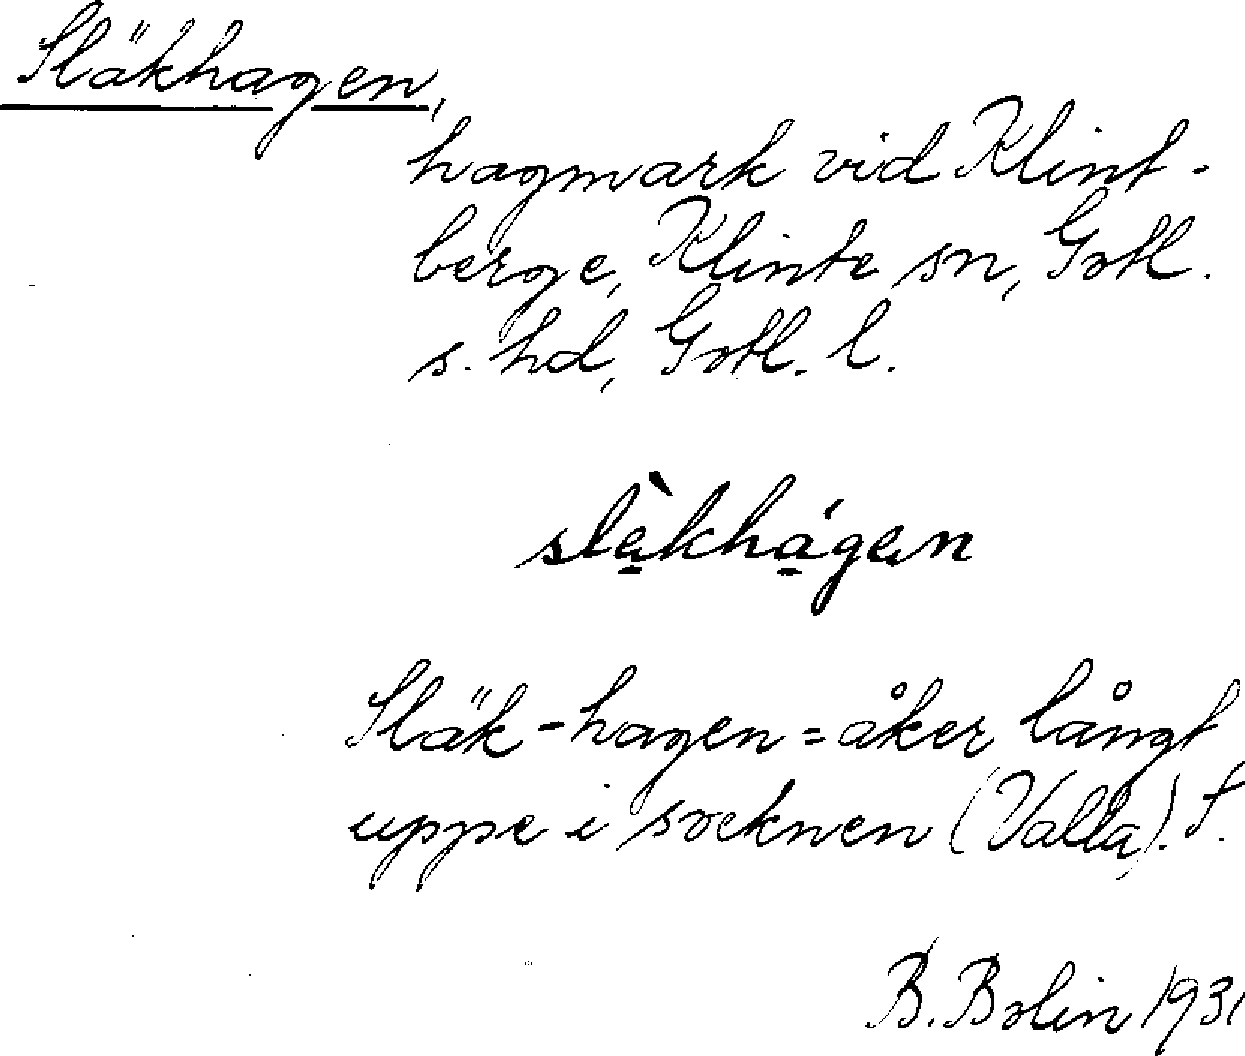 Släkhagen,
hagmark vid Klint-
berge, Klinte sn, Gotl.
s. hd, Gotl. l.
slèkhágen
Släk-hagen = åker långt
uppe i socknen (Valla). S.
B. Bolin 1931